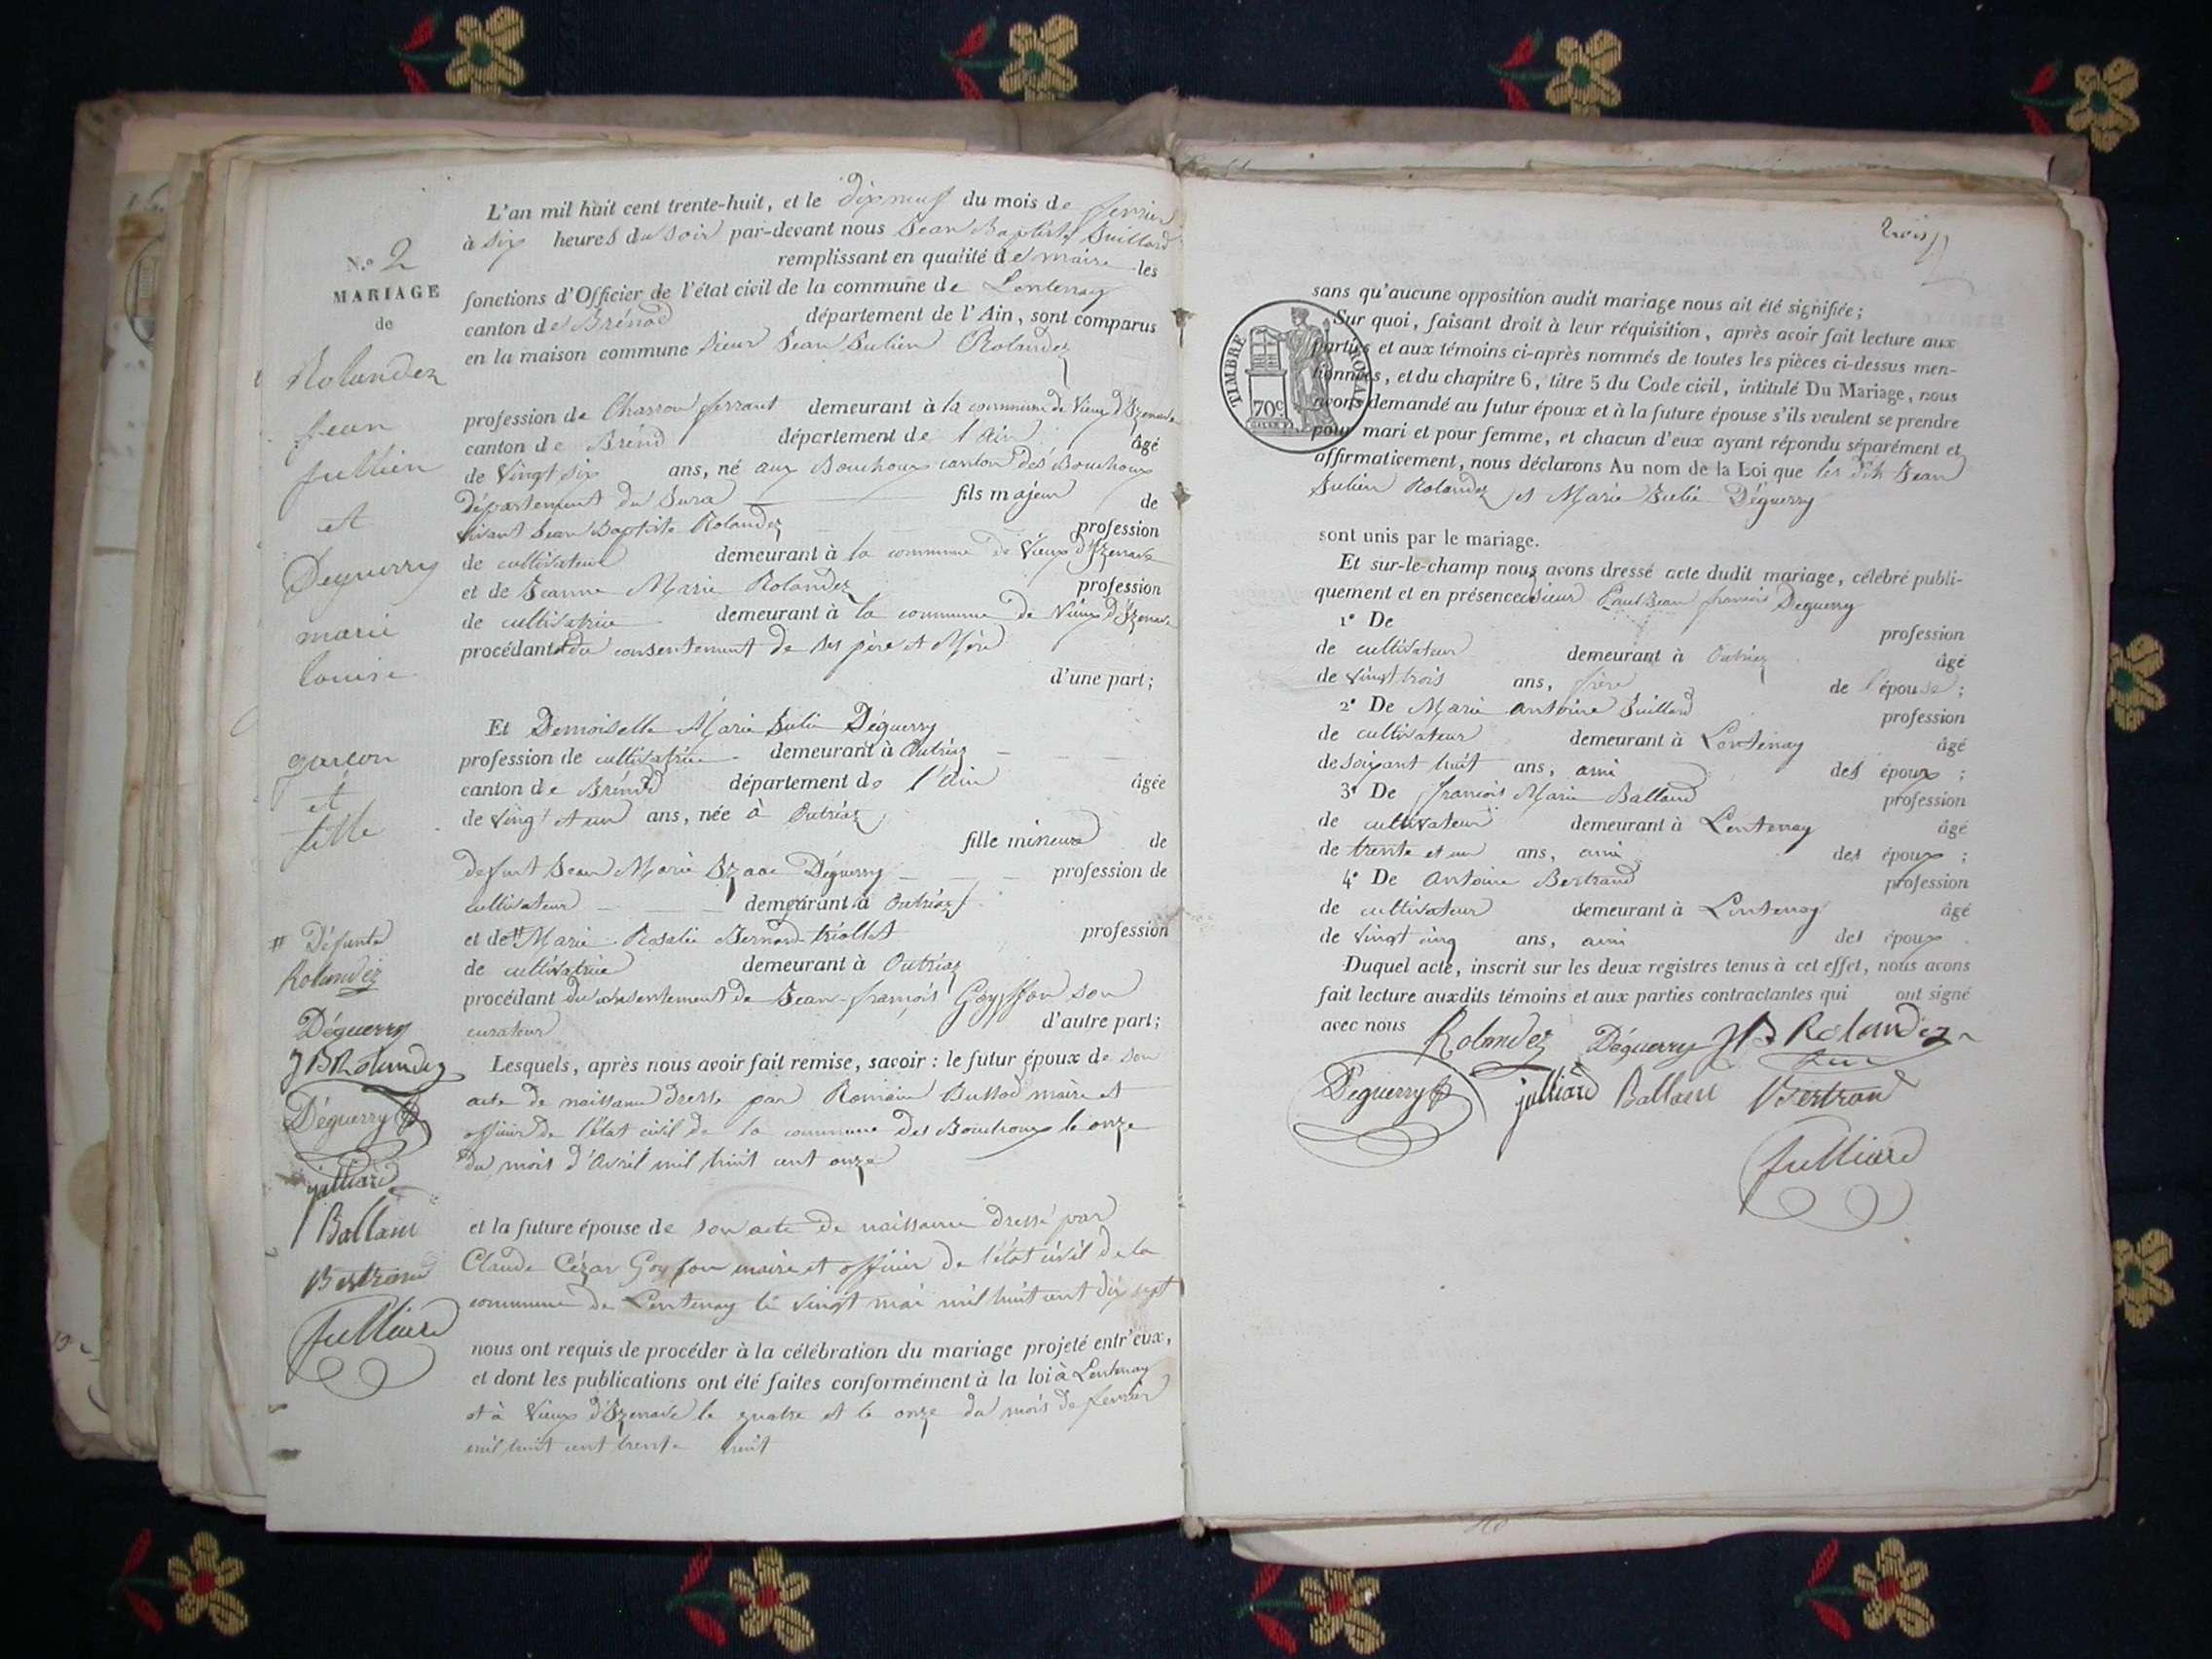 N.o 2
MARIAGE
de
Rolandez
jean
jullien
et
Deguerry
marie
louise
garcon
et
fille
# Défunte
Rolandez
Déguerry
JB Rolandez
Déguerry
julliard
Balland
Bertrand
Julliard
L'an mil huit cent trente-huit, et le dix neuf du mois de fevrier
à six heures du soir par-devant nous Jean Baptiste Juillard
remplissant en qualité de maire les
fonctions d'Officier de l'état civil de la commune de Lentenay
canton de Brénod département de l'Ain, sont comparus
en la maison commune sieur Jean Julien Rolandez
profession de Charron ferrant demeurant à la commune de Vieux d'Izenave
canton de Brénd département de l'Ain âgé
de vingt six ans, né aux Bouchoux canton des Bouchoux
département du Jura fils majeur de
vivant Jean Baptiste Rolandez profession
de cultivateur demeurant à la commune de Vieux d'Izenave
et de Jeanne Marie Rolandez profession
de cultivatrice demeurant à la commune de Vieux d'Izenave
procédant du consentement de ses père et Mère
d'une part;
Et Demoiselle Marie Julie Déguerry
profession de cultivatrice demeurant à Outriaz
canton de Brénod département de l'Ain âgée
de vingt et un ans, née à Outriaz
fille mineure de
defunt Jean Marie Izaac Déguerry profession de
cultivateur demeurant à Outriaz
et de # Marie Rosalie Bernard triollet profession
de cultivatrice demeurant à Outriaz
procédant du consentement de Jean-françois Goyffon son
curateur d'autre part;
Lesquels, après nous avoir fait remise, savoir : le futur époux de son
acte de naissance dressé par Romain Bussod maire et
officier de l'état civil de la commune des Bouchoux le onze
du mois d'Avril mil huit cent onze
et la future épouse de son acte de naissance dressé par
Claude Cézar Goyffon maire et officier de l'état civil de la
commune de Lentenay le vingt mai mil huit cent dix sept
nous ont requis de procéder à la célébration du mariage projeté entr'eux,
et dont les publications ont été faites conformément à la loi à Lentenay
et à Vieux d'Izenave le quatre et le onze du mois de fevrier
mil huit cent trente huit
trois
TIMBRE ROYAL
70c
sans qu'aucune opposition audit mariage nous ait été signifiée;
Sur quoi, faisant droit à leur réquisition, après avoir fait lecture aux
parties et aux témoins ci-après nommés de toutes les pièces ci-dessus men-
tionnées, et du chapitre 6, titre 5 du Code civil, intitulé Du Mariage, nous
avons demandé au futur époux et à la future épouse s'ils veulent se prendre
pour mari et pour femme, et chacun d'eux ayant répondu séparément et
affirmativement, nous déclarons Au nom de la Loi que les dits Jean
Julien Rolandez et Marie Julie Déguerry
sont unis par le mariage.
Et sur-le-champ nous avons dressé acte dudit mariage, célébré publi-
quement et en présence sieur Paul Jean francois Deguerry
1° De profession
de cultivateur demeurant à Outriaz âgé
de vingt trois ans, frère de l'épouse;
2° De Marie antoine Juillard profession
de cultivateur demeurant à Lentenay âgé
de soixant huit ans, ami des époux;
3° De francois Marie Balland profession
de cultivateur demeurant à Lentenay âgé
de trente et un ans, ami des époux;
4° De antoine Bertrand profession
de cultivateur demeurant à Lentenay âgé
de vingt cinq ans, ami des époux.
Duquel acte, inscrit sur les deux registres tenus à cet effet, nous avons
fait lecture auxdits témoins et aux parties contractantes qui ont signé
avec nous Rolandez Déguerry JB Rolandez
Déguerry julliard Balland Bertrand
Julliard